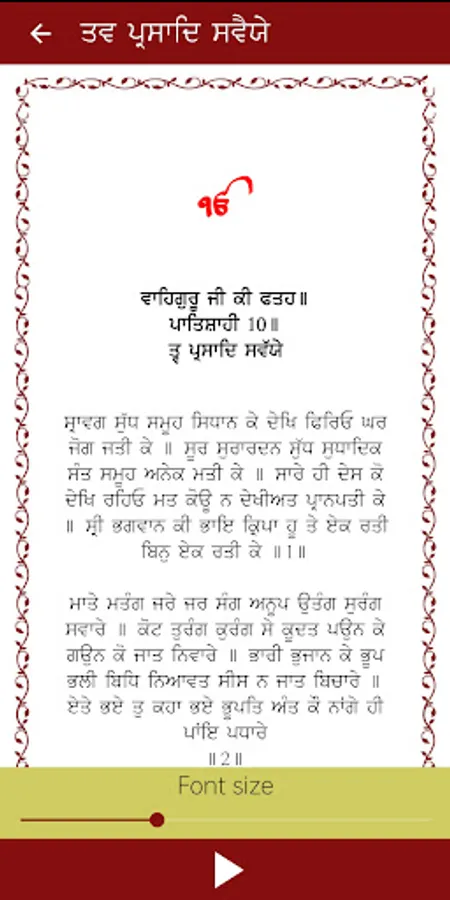 ਤਵ ਪ੍ਰਸਾਦਿ ਸਵੈਯੇ
ੴ
ਵਾਹਿਗੁਰੂ ਜੀ ਕੀ ਫਤਹ॥
ਪਾਤਿਸ਼ਾਹੀ 10॥
ਤ੍ਵ ਪ੍ਰਸਾਦਿ ਸਵੱਯੇ
ਸ੍ਰਾਵਗ ਸੁੱਧ ਸਮੂਹ ਸਿਧਾਨ ਕੇ ਦੇਖਿ ਫਿਰਿਓ ਘਰ
ਜੋਗ ਜਤੀ ਕੇ ॥ ਸੂਰ ਸੁਰਾਰਦਨ ਸੁੱਧ ਸੁਧਾਦਿਕ
ਸੰਤ ਸਮੂਹ ਅਨੇਕ ਮਤੀ ਕੇ ॥ ਸਾਰੇ ਹੀ ਦੇਸ ਕੋ
ਦੇਖਿ ਰਹਿਓ ਮਤ ਕੋਊ ਨ ਦੇਖੀਅਤ ਪ੍ਰਾਨਪਤੀ ਕੇ
॥ ਸ੍ਰੀ ਭਗਵਾਨ ਕੀ ਭਾਇ ਕ੍ਰਿਪਾ ਹੂ ਤੇ ਏਕ ਰਤੀ
ਬਿਨੁ ਏਕ ਰਤੀ ਕੇ ॥1॥
ਮਾਤੇ ਮਤੰਗ ਜਰੇ ਜਰ ਸੰਗ ਅਨੂਪ ਉਤੰਗ ਸੁਰੰਗ
ਸਵਾਰੇ ॥ ਕੋਟ ਤੁਰੰਗ ਕੁਰੰਗ ਸੇ ਕੂਦਤ ਪਉਨ ਕੇ
ਗਉਨ ਕੋ ਜਾਤ ਨਿਵਾਰੇ ॥ ਭਾਰੀ ਭੁਜਾਨ ਕੇ ਭੂਪ
ਭਲੀ ਬਿਧਿ ਨਿਆਵਤ ਸੀਸ ਨ ਜਾਤ ਬਿਚਾਰੇ ॥
ਏਤੇ ਭਏ ਤੁ ਕਹਾ ਭਏ ਭੂਪਤਿ ਅੰਤ ਕੌ ਨਾਂਗੇ ਹੀ
ਪਾਂਇ ਪਧਾਰੇ
॥2॥
Font size